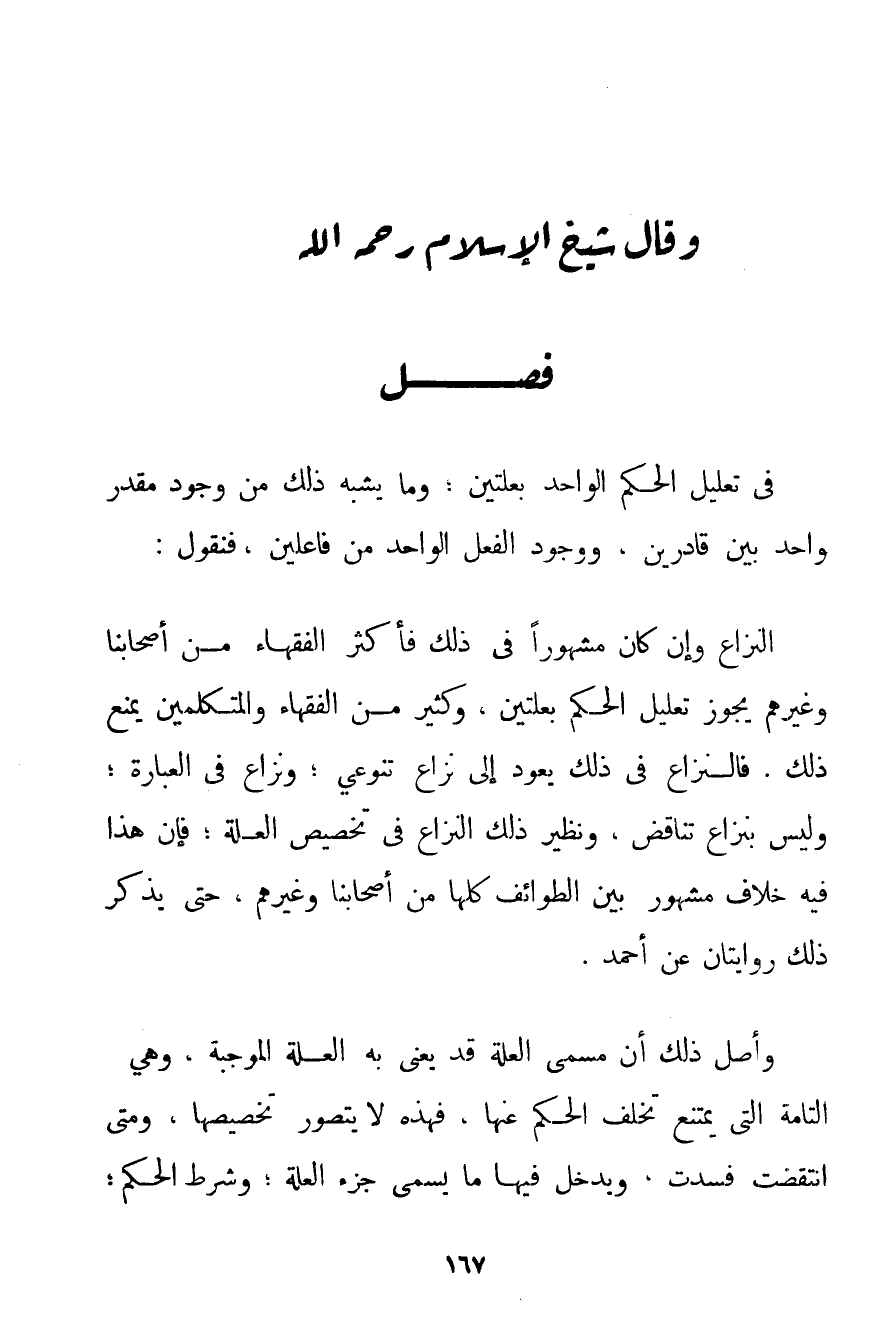 وقال شيخ الإسلام رحمه الله
فصـــــــــل
فى تعليل الحكم الواحد بعلتين ؛ وما يشبه ذلك من وجود مقدر
واحد بين قادرين ، ووجود الفعل الواحد من فاعلين ، فنقول :
النزاع وإن كان مشهوراً فى ذلك فأكثر الفقهاء مـن أصحابنا
وغيرهم يجوز تعليل الحكم بعلتين ، وكثير مـن الفقهاء والمتكلمين يمنع
ذلك . فالنزاع فى ذلك يعود إلى نزاع تنوعي ؛ ونزاع فى العبارة ؛
وليس بنزاع تناقض ، ونظير ذلك النزاع فى تخصيص العلة ؛ فإن هذا
فيه خلاف مشهور بين الطوائف كلها من أصحابنا وغيرهم ، حتى يذكر
ذلك روايتان عن أحمد .
وأصل ذلك أن مسمى العلة قد يعنى به العلة الموجبة ، وهي
التامة التى يمتنع تخلف الحكم عنها ، فهذه لا يتصور تخصيصها ، ومتى
انتقضت فسدت . ويدخل فيها ما يسمى جزء العلة ؛ وشرط الحكم ؛
١٦٧